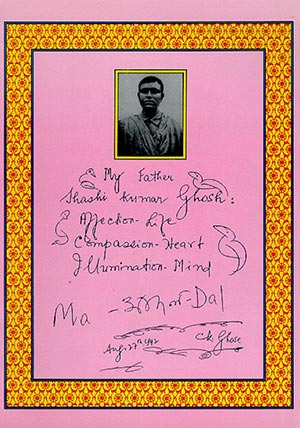 My Father
Shashi Kumar Ghosh:
Affection-Life
Compassion-Heart
Illumination-Mind
Ma - -Dal
Aug. 27th 1992 CK Ghose